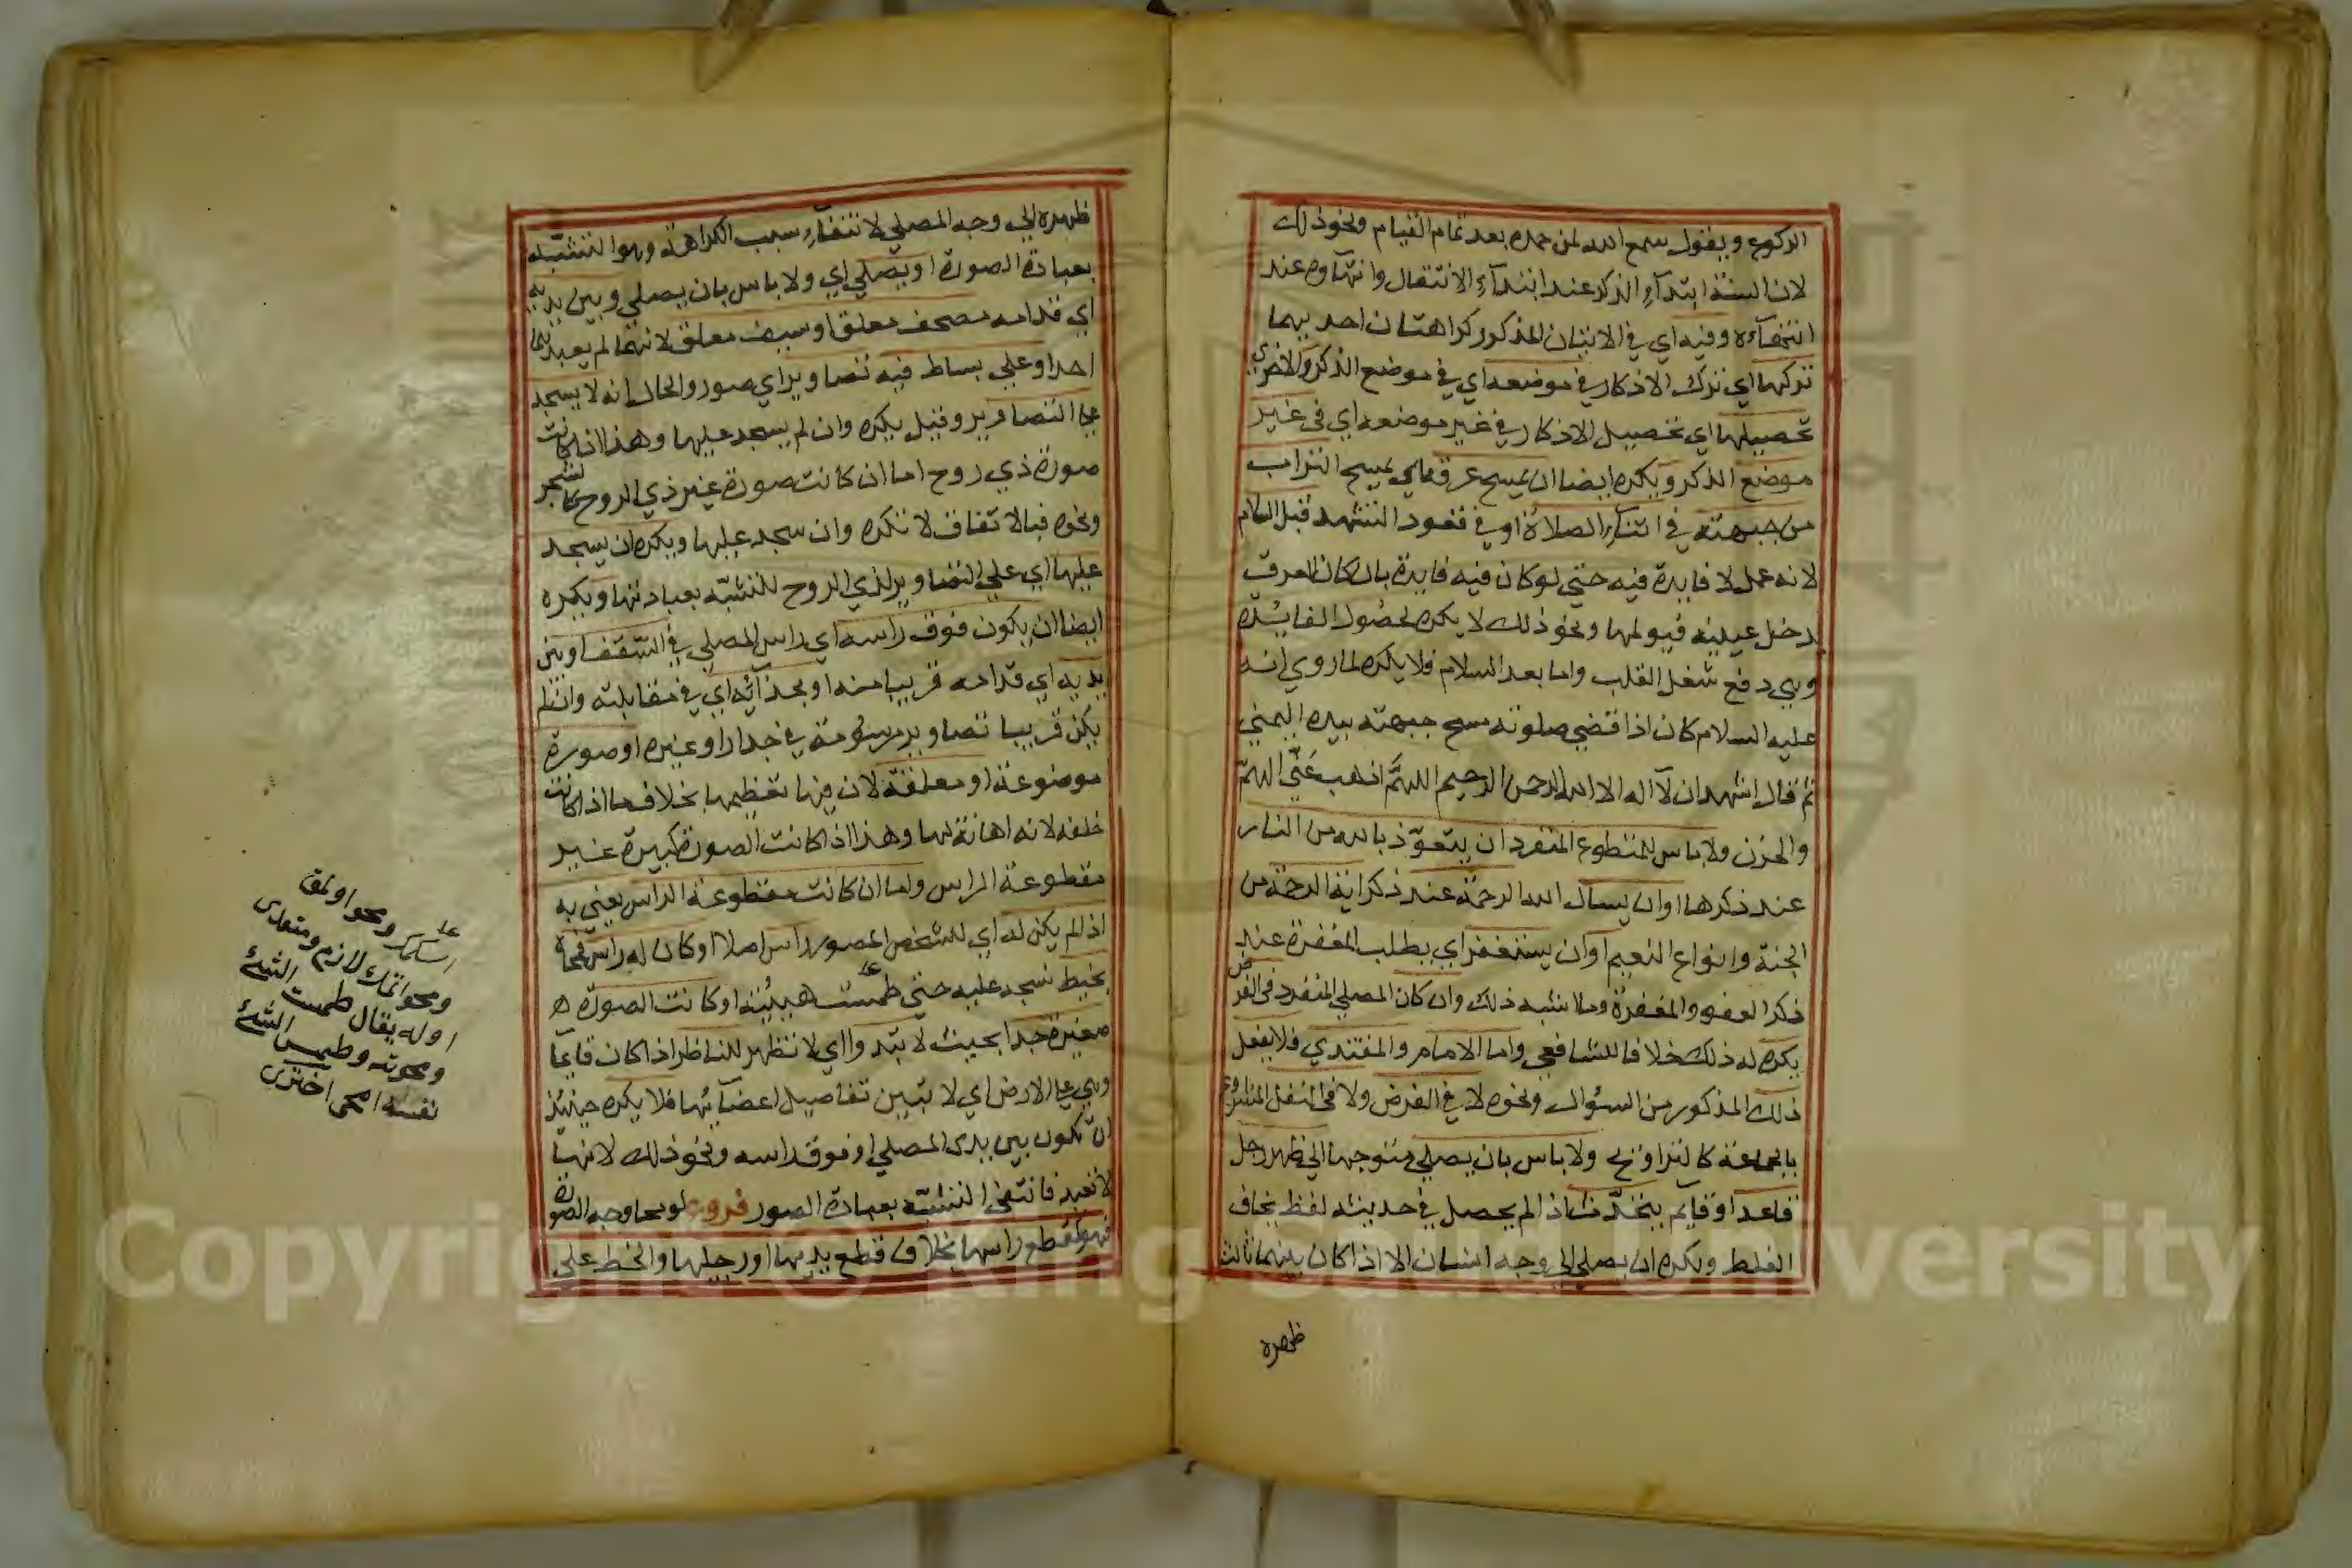 الركوع ويقول سمع الله لمن حمده بعد تمام القيام ونحو ذلك
لان السنة ابتدآء الذكر عند ابتدآء الانتقال وانتهآوه عند
انتهآءه وفيه اي في الاتيان المذكور كراهتان احديهما
تركها اي ترك الاذكار في موضعه اي في موضع الذكر والاخرى
تحصيلها اي تحصيل الاذكار في غير موضعه اي في غير
موضع الذكر ويكره ايضا ان يمسح عرقه اي يمسح التراب
من جبهته في اثنآء الصلاة او في قعود التشهد قبل السلام
لانه عمل لا فايدة فيه حتي لو كان فيه فايدة بان كان العرق
يدخل عينيه فيولمها ونحو ذلك لا يكره لحصول الفايدة
وهي دفع شغل القلب واما بعد السلام فلا يكره لما روي انه
عليه السلام كان اذا قضي صلوته مسح جبهته بيده اليمني
ثم قال اشهد ان لآ اله الا الله الرحمن الرحيم اللهمَّ اذهب عَنّي الهمّ
والحزن ولا باس للمتطوع المنفرد ان يتعوّذ بالله من النار
عند ذكرها اوان يسال الله الرحمة عند ذكر اية الرحمة من
الجنة وانواع النعيم اوان يستغفر اي يطلب المغفرة عند
ذكر العفو والمغفرة وما اشبه ذلك وان كان المصلي المنفرد في الفرض
يكره له ذلك خلافا للشافعي واما الامام والمقتدي فلا يفعل
ذلك المذكور من السئوال ونحوه لا في الفرض ولا في النفل المشروع
بالجماعة كالتراويح ولا باس بان يصلي متوجها الي ظهر رجل
قاعد او قايم يتحدّث اذا لم يحصل في حديثه لفظ يخاف
الغلط ويكره ان يصلي الي وجه انسان الا اذا كان بينهما ثالث
ظهره
ظهره الي وجه المصلي لا نتفآء سبب الكراهة وهو التشبّه
بعبادة الصورة او يصلي اي ولا باس بان يصلي وبين يديه
اي قدامه مصحف معلق او سيف معلق لانهما لم يعبدهما
احد او علي بساط فيه تصاوير اي صور والحال انه لا يسجد
علي التصاوير وقيل يكره وان لم يسجد عليها وهذا اذا كانت
صورة ذي روح اما ان كانت صورة غير ذي الروح كالشجر
ونحوه فبالاتفاق لا تكره وان سجد عليها ويكره ان يسجد
عليها اي علي التصاوير لذي الروح للتشبّه بعبادتها ويكره
ايضا ان يكون فوق راسه اي راس المصلي في السّقف او بين
يديه اي قدامه قريبا منه او بحذآئه اي في مقابلته وان لم
يكن قريبا تصاوير مرسومة في جدار او غيره او صورة
موضوعة او معلقة لان فيها تعظيمها بخلاف ما اذا كانت
خلفه لانه اهانة لها وهذا اذا كانت الصورة كبيرة غير
مقطوعة الراس واما ان كانت مقطوعة الراس يعني به
اذا لم يكن له اي للشخص المصور راس اصلا او كان له راس فمحاه
بخيط نسجه عليه حتي طمست هيئته او كانت الصورة
صغيرة جدا بحيث لا تبدوا اي لا تظهر للناظر اذا كان قايما
وهي علي الارض اي لا تبين تفاصيل اعضآئها فلا يكره حينئذ
ان تكون بين يدى المصلي او فوق راسه ونحو ذلك لانها
لا تعبد فانتفي التشبّه بعبادة الصور فروع لو محا وجه الصورة
فهو كقطع راسها بخلاف قطع يديها او رجليها والخط علي
ومحو اولمق
ومحو انمك لازم ومتعدى
اوله يقال طمست الشئ
ومحوته وطمس الشئ
نفسه امحى اخترى
Copyright © King Saud University